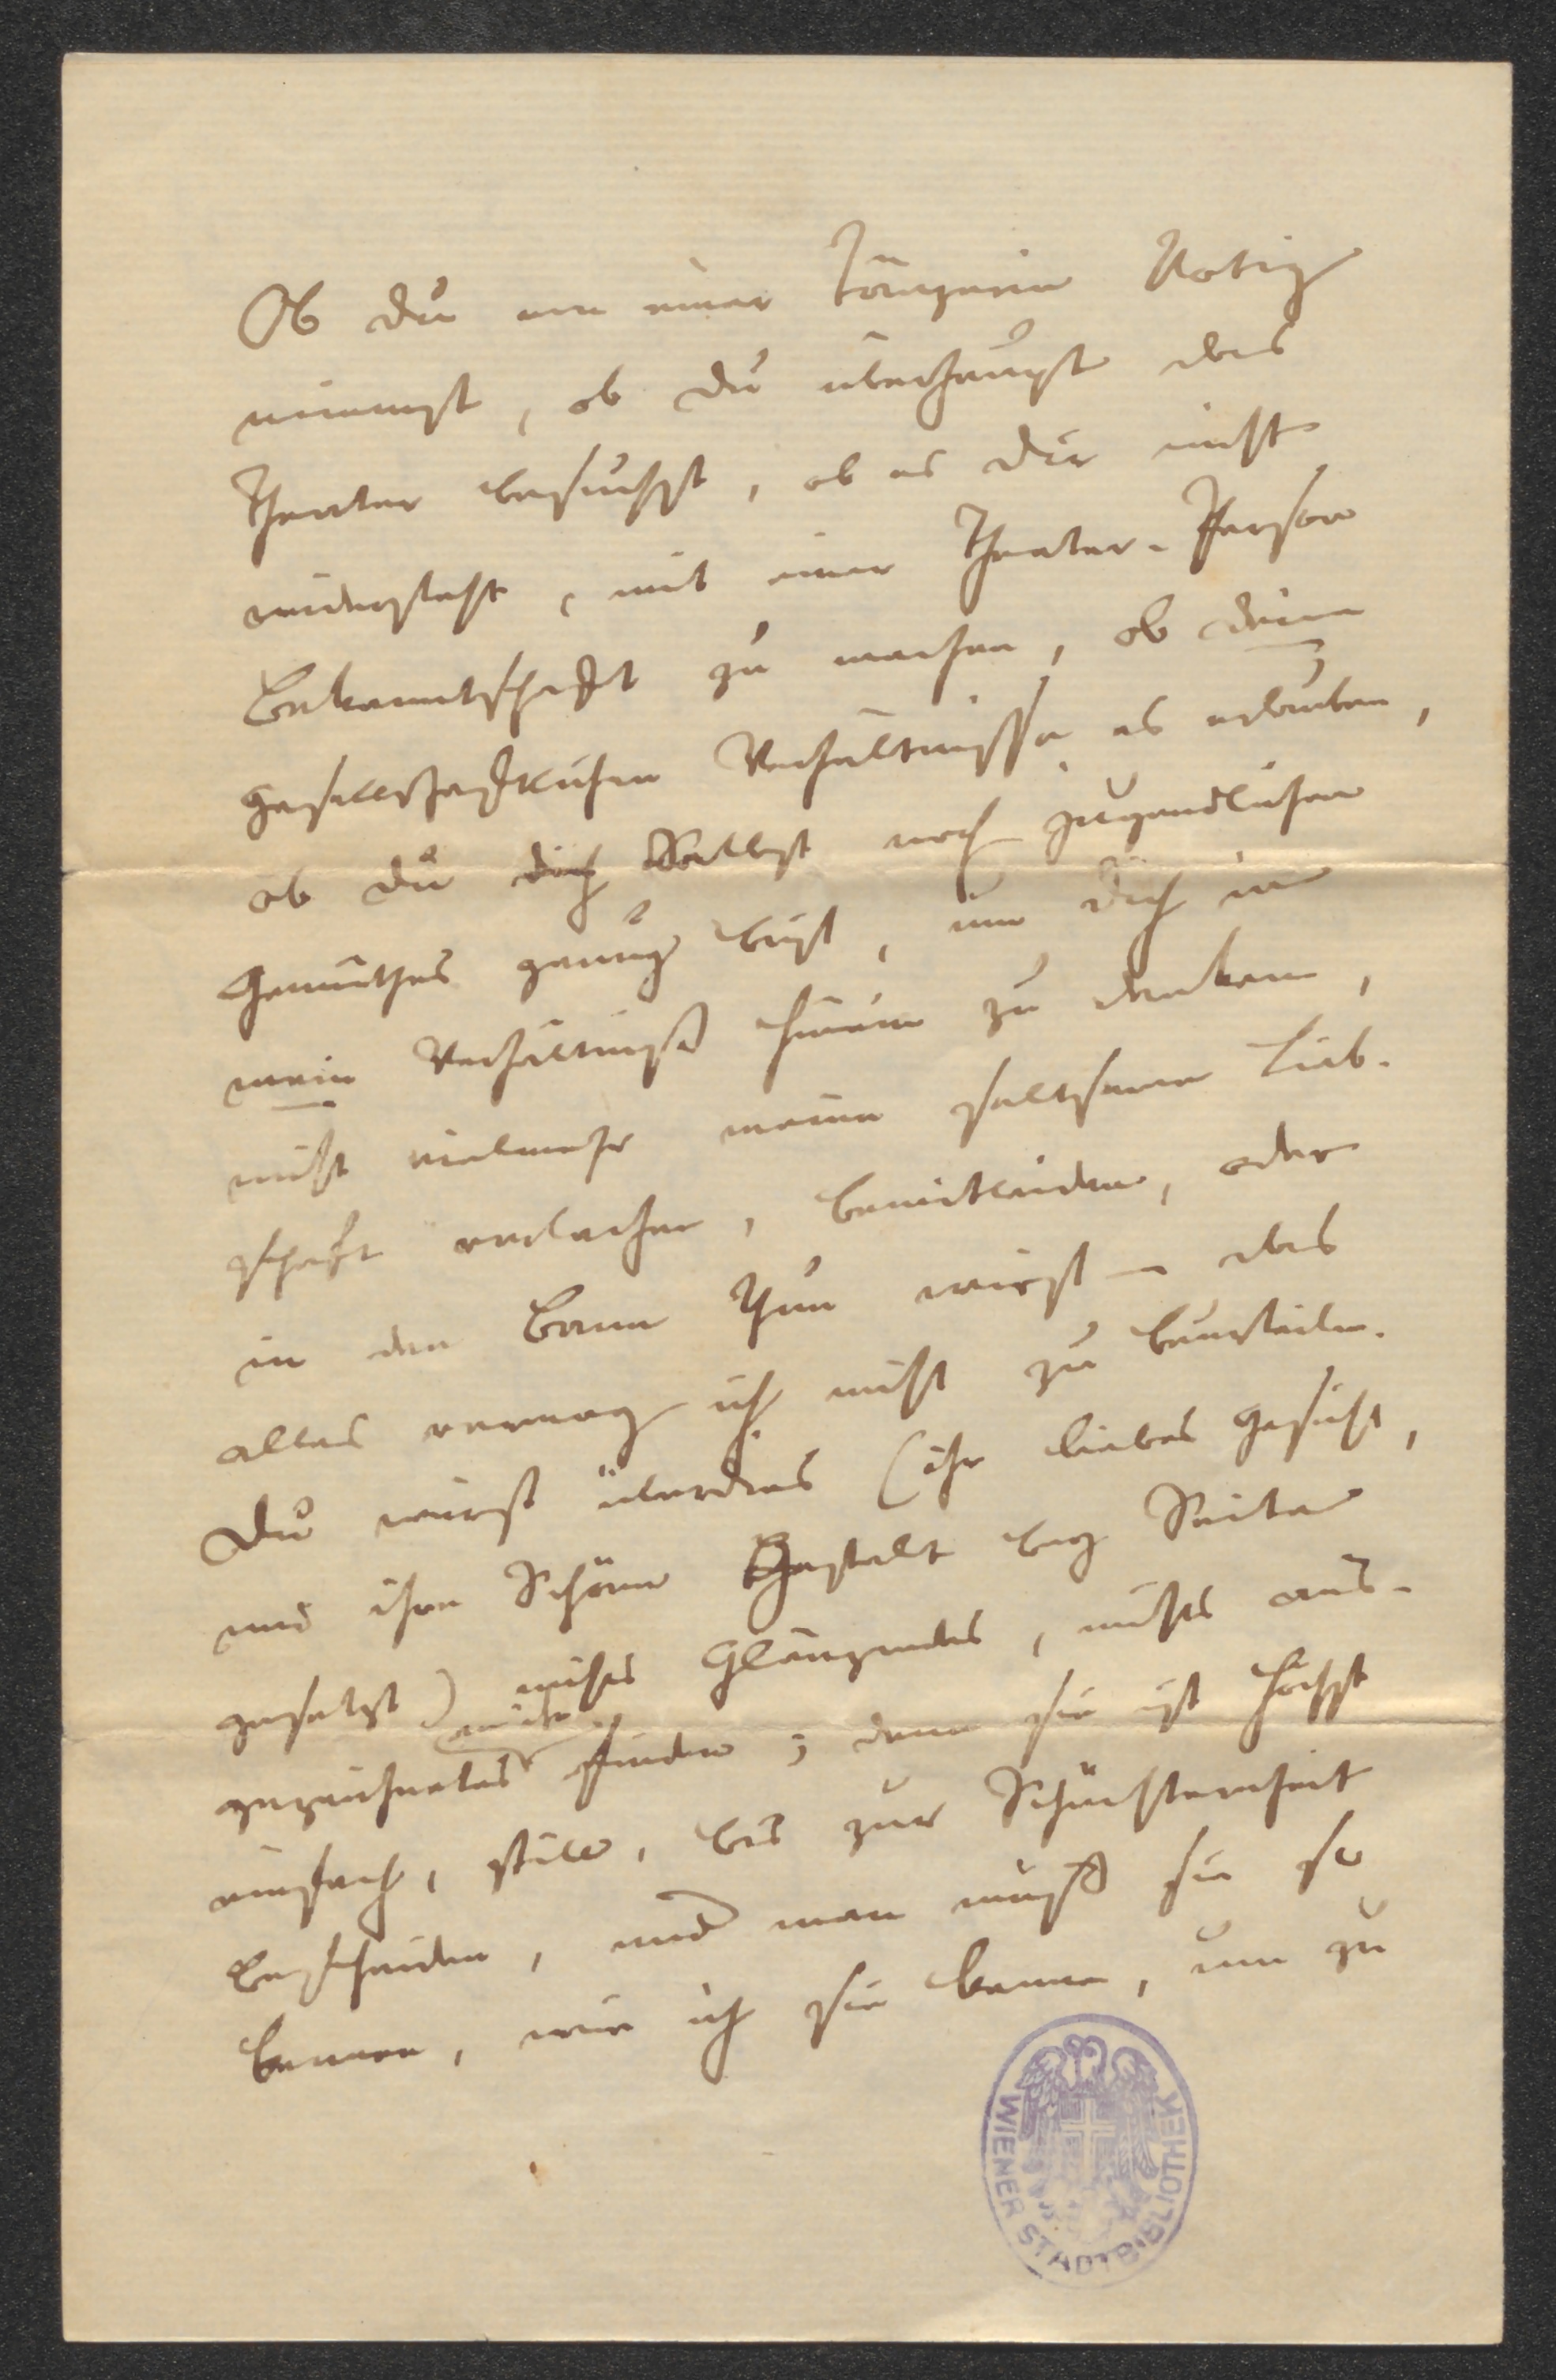 Ob du an einer Tänzerin Notiz
nimmst, ob du überhaupt das
Theater besuchst, ob es dir nicht
widersteht, mit einer Theater-Person
Bekanntschaft zu machen, ob deine
gesellschaftlichen Verhältnisse es erlauben,
ob du dich selbst noch jugendlichen
Gemüthes genug bist, um dich in
mein Verhältniß hinein zu denken,
nicht vielmehr meine seltsame Lieb-
schaft verlachen, bemitleiden, oder
in den Bann thun wirst – das
alles vermag ich nicht zu beurteilen.
Du wirst überdies (ihr liebes Gesicht,
und ihre Schöne Gestalt bey Seite
gesetzt) nichts Glänzendes, nichts aus-
gezeichnetes an ihr finden; denn sie ist höchst
einfach, stille, bis zur Schüchternheit
bescheiden, und man muß sie so
kennen, wie ich sie kenne, um zu
WIENER STADTBIBLIOTHEK